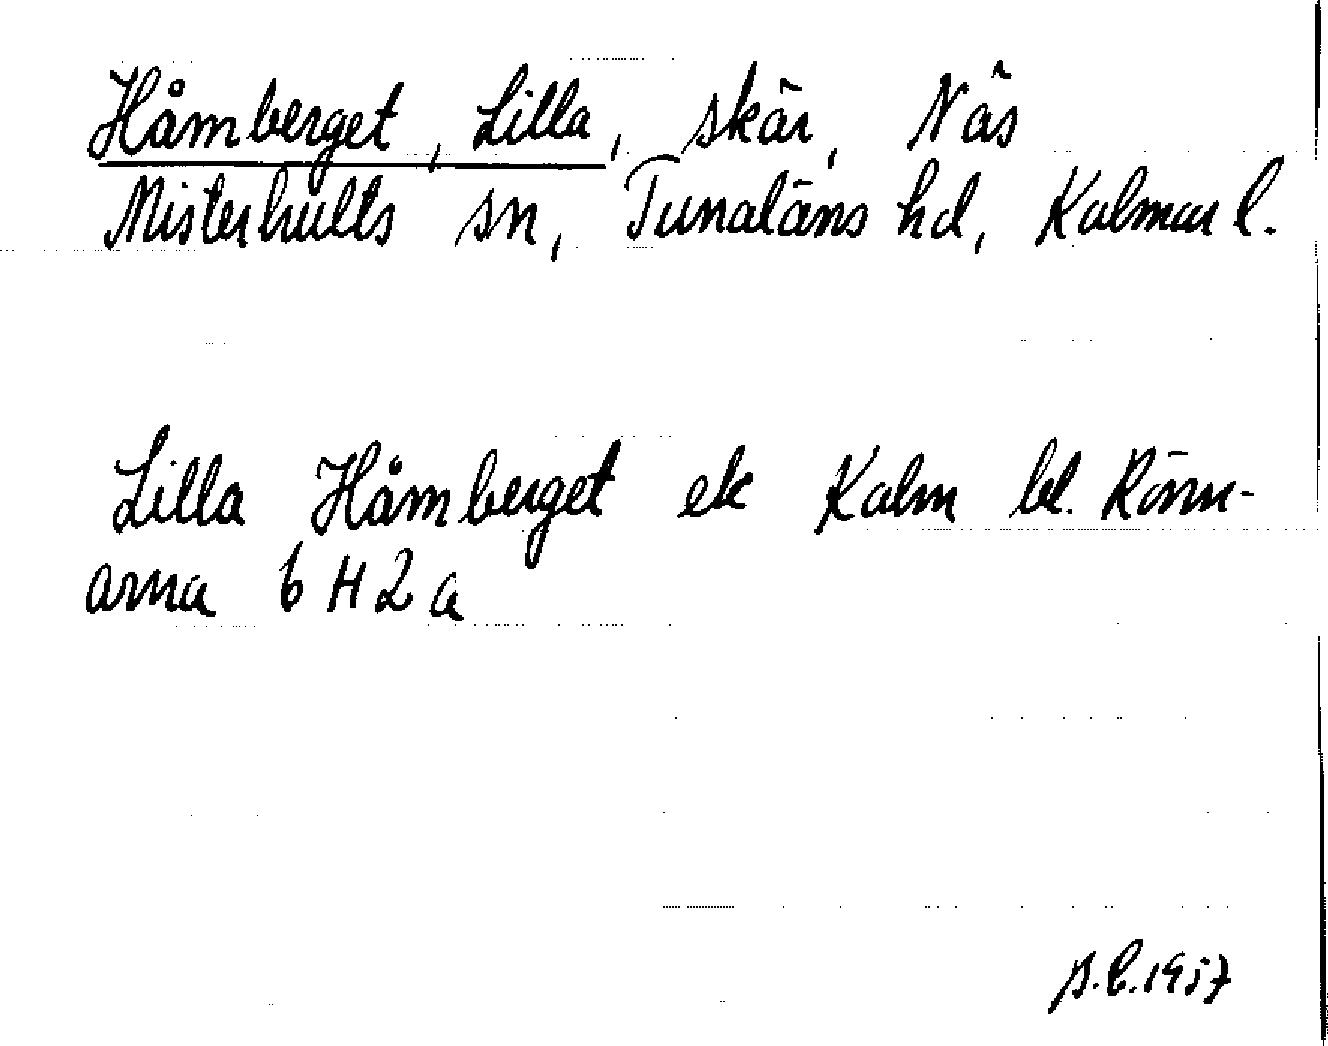 Håmberget, Lilla, skär, Näs
Misterhults sn, Tunaläns hd, Kalmar l.
Lilla Håmberget ek Kalm bl. Rönn-
arna 6 H 2 a
B.E. 1957